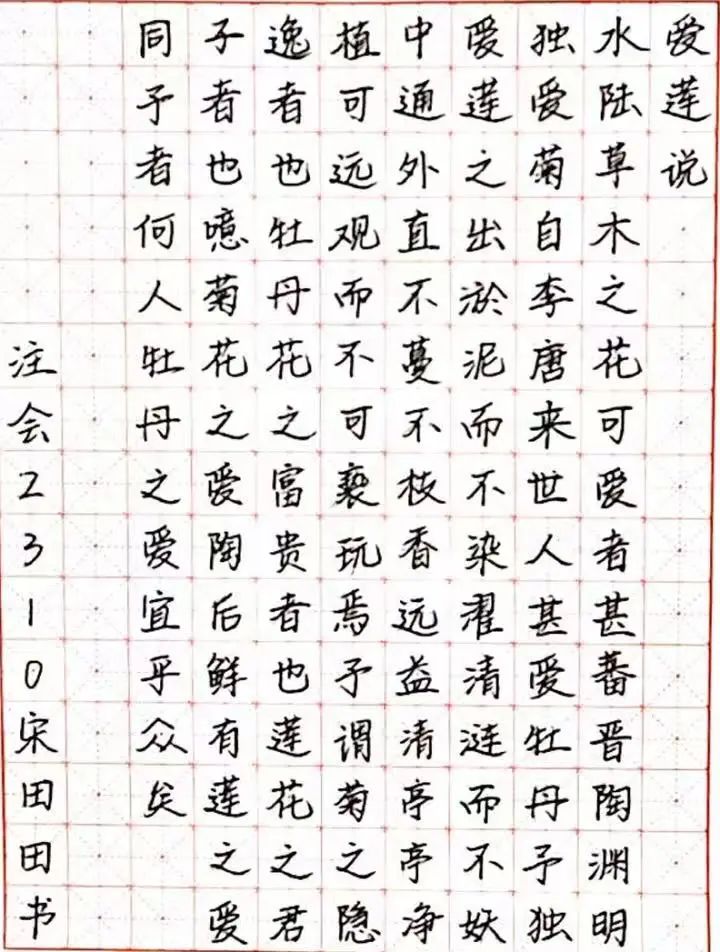 爱莲说
水陆草木之花可爱者甚蕃晋陶渊明
独爱菊自李唐来世人甚爱牡丹予独
爱莲之出淤泥而不染濯清涟而不妖
中通外直不蔓不枝香远益清亭亭净
植可远观而不可亵玩焉予谓菊之隐
逸者也牡丹花之富贵者也莲花之君
子者也噫菊花之爱陶后鲜有莲之爱
同予者何人牡丹之爱宜乎众矣
注会2310宋田田书